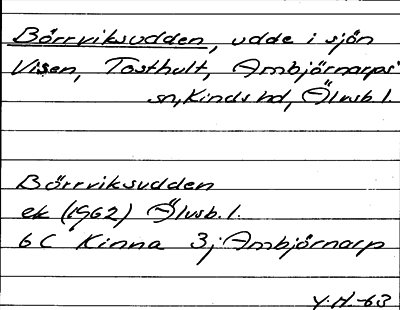 Börrviksudden, udde i sjön
Visen, Tosthult, Ambjörnarps
sn, Kinds hd, Älvsb. l.
Börrviksudden
ek (1962) Älvsb. l.
6 C Kinna 3j Ambjörnarp
Y.H.-63